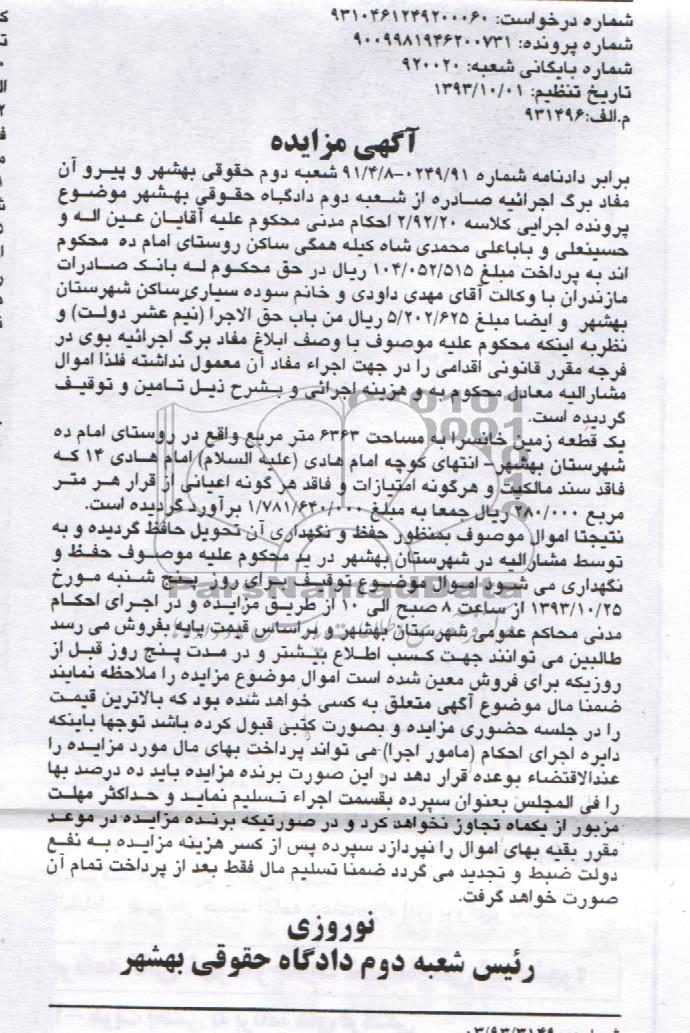 شماره درخواست: ۹۳۱۰۴۶۱۲۴۹۲۰۰۰۶۰
شماره پرونده: ۹۰۰۹۹۸۱۹۴۶۲۰۰۷۳۱
شماره بایگانی شعبه: ۹۲۰۰۲۰
تاریخ تنظیم: ۱۳۹۳/۱۰/۰۱
م.الف:۹۳۱۴۹۶
آگهی مزایده
برابر دادنامه شماره ۰۲۴۹/۹۱-۹۱/۴/۸ شعبه دوم حقوقی بهشهر و پیرو آن
مفاد برگ اجرائیه صادره از شعبه دوم دادگاه حقوقی بهشهر موضوع
پرونده اجرایی کلاسه ۲/۹۲/۲۰ احکام مدنی محکوم علیه آقایان عین اله و
حسینعلی و باباعلی محمدی شاه کیله همگی ساکن روستای امام ده محکوم
اند به پرداخت مبلغ ۱۰۴/۰۵۲/۵۱۵ ریال در حق محکوم له بانک صادرات
مازندران با وکالت آقای مهدی داودی و خانم سوده سیاری ساکن شهرستان
بهشهر و ایضا مبلغ ۵/۲۰۲/۶۲۵ ریال من باب حق الاجرا (نیم عشر دولت) و
نظربه اینکه محکوم علیه موصوف با وصف ابلاغ مفاد برگ اجرائیه بوی در
فرجه مقرر قانونی اقدامی را در جهت اجراء مفاد آن معمول نداشته فلذا اموال
مشارالیه معادل محکوم به و هزینه اجرائی و بشرح ذیل تامین و توقیف
گردیده است.
یک قطعه زمین خانسرا به مساحت ۶۳۶۳ متر مربع واقع در روستای امام ده
شهرستان بهشهر- انتهای کوچه امام هادی (علیه السلام) امام هادی ۱۴ که
فاقد سند مالکیت و هرگونه امتیازات و فاقد هر گونه اعیانی از قرار هر متر
مربع ۲۸۰/۰۰۰ ریال جمعا به مبلغ ۱/۷۸۱/۶۴۰/۰۰۰ برآورد گردیده است.
نتیجتا اموال موصوف بمنظور حفظ و نگهداری آن تحویل حافظ گردیده و به
توسط مشارالیه در شهرستان بهشهر در ید محکوم علیه موصوف حفظ و
نگهداری می شود اموال موضوع توقیف برای روز پنج شنبه مورخ
ParsNamadData
۱۳۹۳/۱۰/۲۵ از ساعت ۸ صبح الی ۱۰ از طریق مزایده و در اجرای احکام
مدنی محاکم عمومی شهرستان بهشهر و براساس قیمت پایه بفروش می رسد
طالبین می توانند جهت کسب اطلاع بیشتر و در مدت پنج روز قبل از
روزیکه برای فروش معین شده است اموال موضوع مزایده را ملاحظه نمایند
ضمنا مال موضوع آگهی متعلق به کسی خواهد شده بود که بالاترین قیمت
را در جلسه حضوری مزایده و بصورت کتبی قبول کرده باشد توجها باینکه
دایره اجرای احکام (مامور اجرا) می تواند پرداخت بهای مال مورد مزایده را
عندالاقتضاء بوعده قرار دهد در این صورت برنده مزایده باید ده درصد بها
را فی المجلس بعنوان سپرده بقسمت اجراء تسلیم نماید و حداکثر مهلت
مزبور از یکماه تجاوز نخواهد کرد و در صورتیکه برنده مزایده در موعد
مقرر بقیه بهای اموال را نپردازد سپرده پس از کسر هزینه مزایده به نفع
دولت ضبط و تجدید می گردد ضمنا تسلیم مال فقط بعد از پرداخت تمام آن
صورت خواهد گرفت.
نوروزی
رئیس شعبه دوم دادگاه حقوقی بهشهر